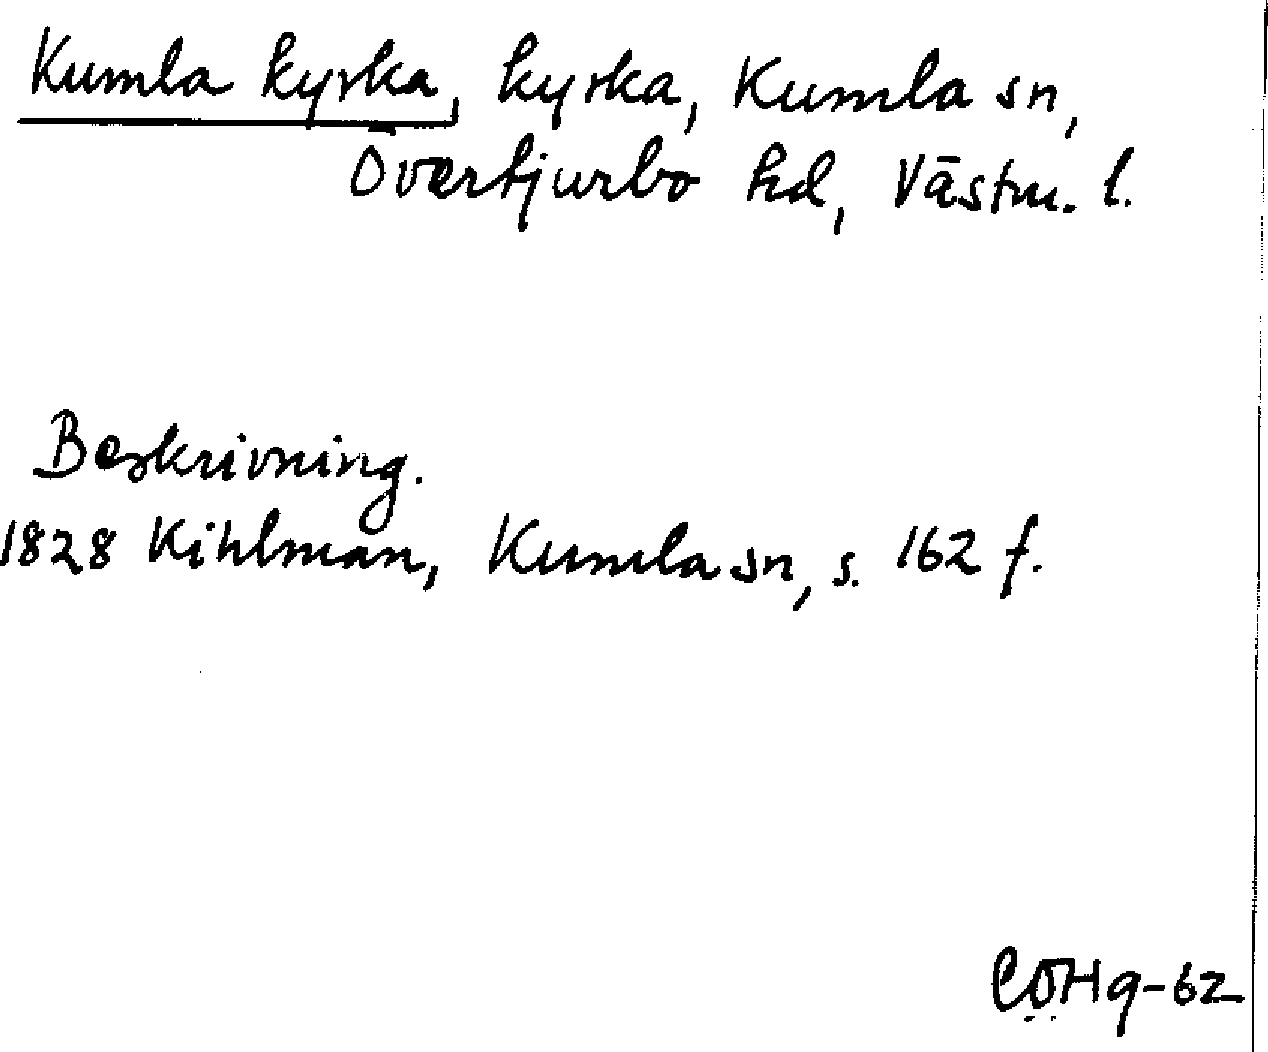 Kumla kyrka, kyrka, Kumla sn,
Övertjurbo hd, Västm. l.
Beskrivning.
1828 Kihlman, Kumla sn, s. 162 f.